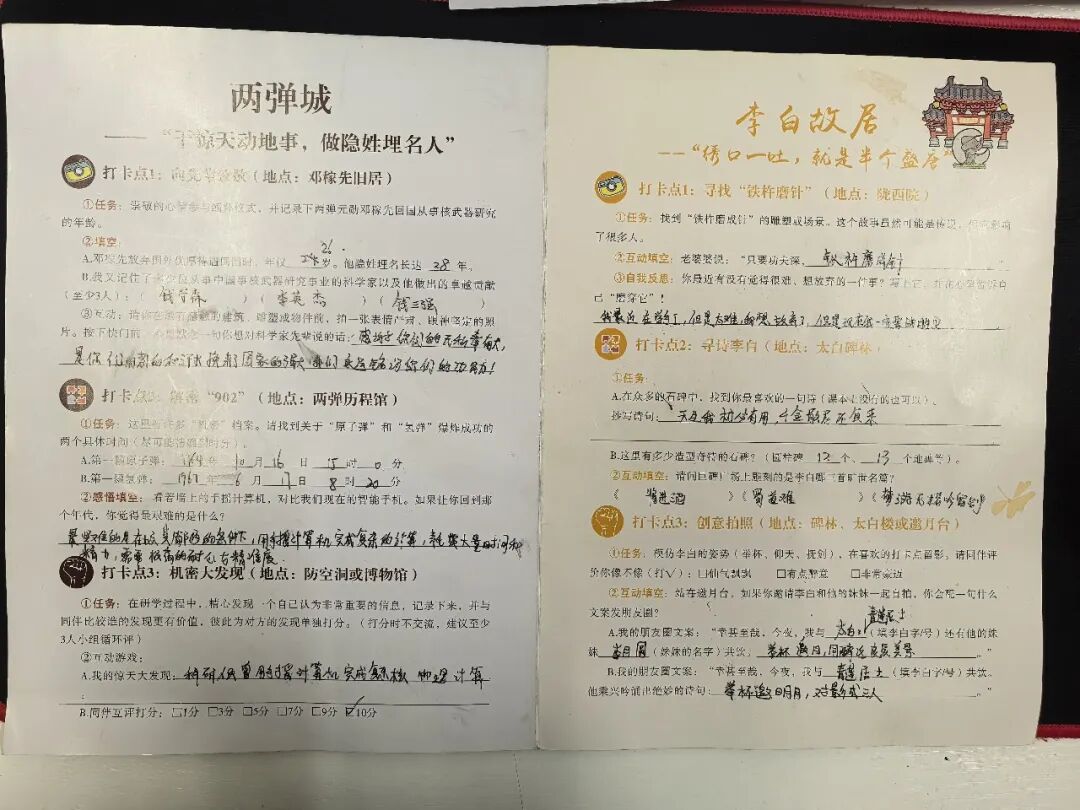 两弹城
——“干惊天动地事，做隐姓埋名人”
打卡点1：向先辈致敬（地点：邓稼先旧居）
①任务：崇敬的心 仪式，并记录下两弹元勋邓稼先回国从事核武器研究
的年龄。
②填空：
A.邓稼先放弃国外优厚待遇回国时，年仅 26 岁。他隐姓埋名长达 28 年。
B.我又记住了 从事中国事核武器研究事业的科学家以及他做出的卓越贡献
（至少3人）：（ ）（ ）（钱三强）
③互动：请你在 的建筑、雕塑或物件前，拍一张表情严肃、眼神坚定的照
片。按下快门前， 一句你想对科学家先辈说的话：感谢 你们的无私奉献，
是你们 换来了国家的强大
打卡点2：解密“902”（地点：两弹历程馆）
①任务：这里有许多“机密”档案。请找到关于“原子弹”和“氢弹”爆炸成功的
两个具体时间（尽可能精确到时分）。
A.第一颗原子弹： 年 10 月 16 日 15 时 0 分
B.第一颗氢弹：1967 年 6 月 17 日 8 时 20 分
②感悟填空：看着墙上的手摇计算机，对比我们现在的智能手机。如果让你回到那
个年代，你觉得最艰难的是什么？
最艰难的是在 的条件下，用手摇计算机完成复杂的计算，耗费大量时间和
精力，需要极高的耐心与精准度
打卡点3：机密大发现（地点：防空洞或博物馆）
①任务：在研学过程中，精心发现一个自己认为非常重要的信息，记录下来，并与
同伴比较谁的发现更有价值，彼此为对方的发现单独打分。（打分时不交流，建议至少
3人小组循环评）
②互动游戏：
A.我的惊天大发现：科研 曾用手摇计算机完成 核 物理计算
B.同伴互评打分：□1分 □3分 □5分 □7分 □9分 ☑10分
李白故居
——“绣口一吐，就是半个盛唐”
打卡点1：寻找“铁杵磨针”（地点：陇西院）
①任务：找到“铁杵磨成针”的雕塑或场景。这个故事虽然可能是传说，但它影响
了很多人。
②互动填空：老婆婆说：“只要功夫深，铁杵磨成针”
③自我反思：你最近有没有觉得很难、想放弃的一件事？写上它，并在心里告诉自
己“磨穿它”！
我最近在 ，但是太难，就想放弃了，但是现在我一定要
打卡点2：寻诗李白（地点：太白碑林）
①任务：
A.在众多的石碑中，找到你最喜欢的一句诗（课本上没有的也可以）。
抄写诗句：天生我材必有用，千金散尽还复来
B.这里有多少造型奇特的石碑？（圆柱碑 12 个、 13 个地碑等）。
②互动填空：请问巨碑广场上雕刻的是李白哪三首旷世名篇？
《将进酒》《蜀道难》《梦游天姥吟留别》
打卡点3：创意拍照（地点：碑林、太白楼或邀月台）
①任务：模仿李白的姿势（举杯、仰天、抚剑）、在喜欢的打卡点留影，请同伴评
价你像不像（打√）：□仙气飘飘 □有点醉意 □非常豪迈
②互动填空：站在邀月台，如果你邀请李白和他的妹妹一起自拍，你会配一句什么
文案发朋友圈？
A.我的朋友圈文案：“幸甚至哉，今夜，我与 青莲居士 （填李白字/号）还有他的妹
妹 李月圆 （妹妹的名字）共饮， 举杯邀月， ”
B.我的朋友圈文案：“幸甚至哉，今夜，我与 青莲居士 （填李白字/号）共饮。
他乘兴吟诵出绝妙的诗句： 举杯邀明月，对影成三人 ”